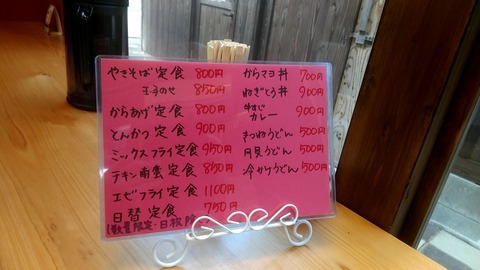 やきそば定食 800円
玉子のせ 850円
からあげ定食 800円
とんかつ定食 900円
ミックスフライ定食 950円
チキン南蛮定食 850円
エビフライ定食 1100円
日替定食 750円
(数量限定・日祝除
からマヨ丼 700円
ねぎとろ丼 900円
牛すじ
カレー 900円
きつねうどん 500円
月見うどん 500円
冷かけうどん 500円